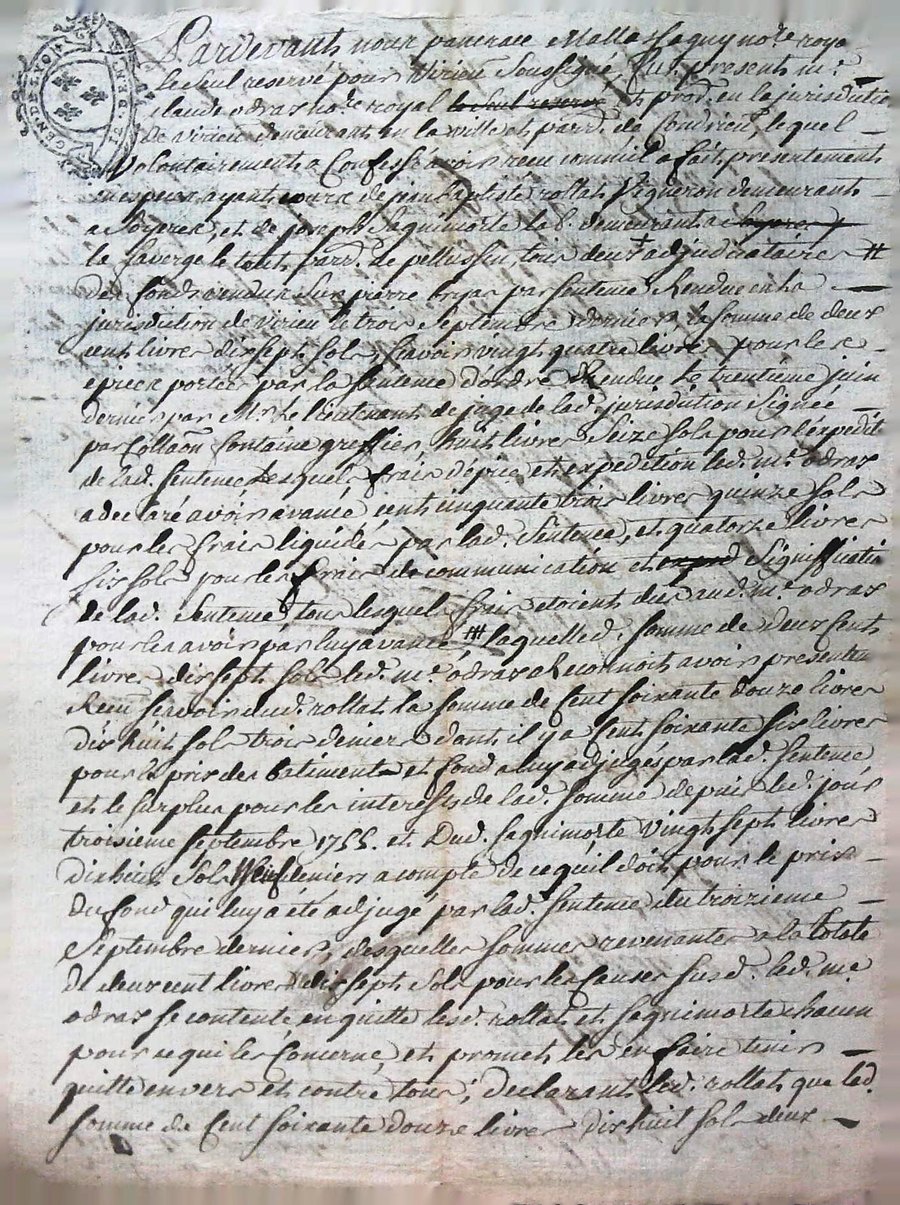 Pardevant nous pancrace Mallassagny no.re roya
le seul reservé pour Virieu Soussigné, fut present m.e
claude odras no.re royal le seul reservé et proc. en la jurisdiction
de virieu demeurant en la ville et parr. de Condrieu lequel
Volontairement a Confessé avoir receu comme il a fait presentement
en especes ayant cours de jean baptiste rollat Vigneron demeurant
a Soyeres, et de joseph Sagnimorte lad. demeurant a
la faverge le tout parr. de pellussin, tous deux adjudicataires #
des fonds vendus sur pierre bryas par sentence Rendue en la
jurisdiction de virieu le trois Septembre dernier la somme de deux
cent livres dix sept sols, scavoir vingt quatre livres pour les
epices portées par la sentence d'ordre Rendue le trentieme juin
dernier par Mr. le lieutenant de juge de lad. jurisdiction signée
par Collaon fontaine greffier, huit livres seize sols pour l'expedit
de lad. sentence lesquels frais d'epice et expedition led. m.e odras
a declaré avoir avancé, cent cinquante trois livres quinze sols
pour les frais liquidés par lad. sentence, et quatorze livres
six sols pour les frais de communication et signiffication
de lad. sentence, tous lesquels frais etoient dus aud. m.e odras
pour les avoir par luy avancé ## laquelle d. somme de deux cent
livres dix sept sols led. m.e odras a Reconnoit avoir presentem
Receu scavoir dud. rollat la somme de cent soixante douze livres
dix huit sols trois deniers dont il y a cent soixante six livres
pour le prix des batiments et fonds a luy adjugés par lad. sentence
et le surplus pour les interests de lad. somme depuis led. jour
troisieme septembre 1755. et dud. Sagnimorte vingt sept livres
dix huit sols neuf deniers a compte de ce qu'il doit pour le prix
du fond qui luy a été adjugé par lad. sentence du troizieme
Septembre dernier, desquelles sommes revenantes a la totale
de deux cent livres dix sept sols pour les causes susd. led. me
odras se contente en quitte lesd. rollat et sagnimorte chacun
pour ce qui les concerne, et promet les en faire tenir
quitte envers et contre tous; declarant led. rollat que lad.
somme de cent soixante douze livres dix huit sols deux